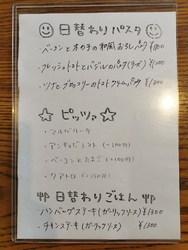 日替わりパスタ
・ベーコンときのこの和風おろしパスタ ¥1100
・フレッシュトマトとバジルのパスタ
・ツナとブロッコリーのトマトクリームパスタ ¥1200
ピッツァ
・マルゲリータ
・アンチョビトマト (+100円)
・ベーコンとたまご (+100円)
・クアトロ (+150円)
日替わりごはん
・ハンバーグステーキ(ガーリックソース) ¥1300
・チキンステーキ(ガーリックソース) ¥1300